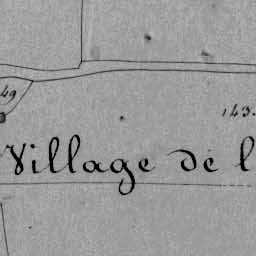 49
143.
Village de l